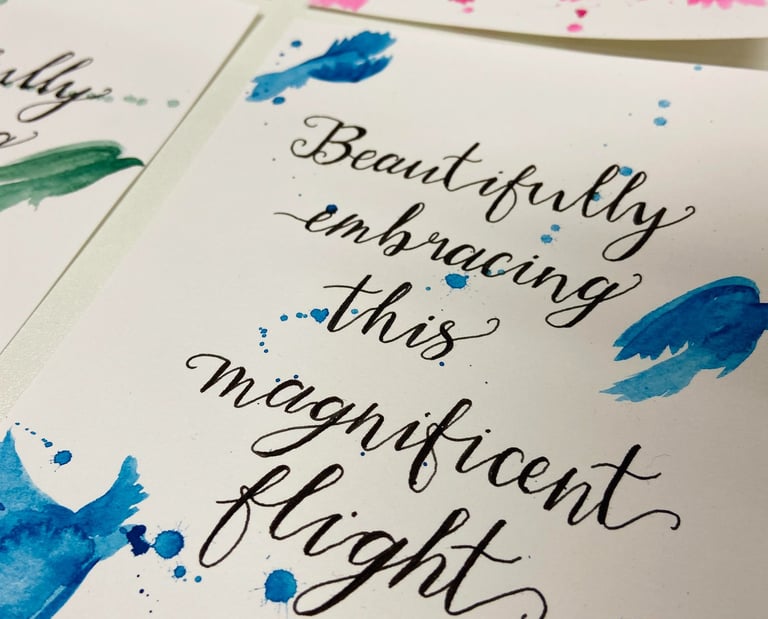 Beautifully
embracing
this
magnificent
flight